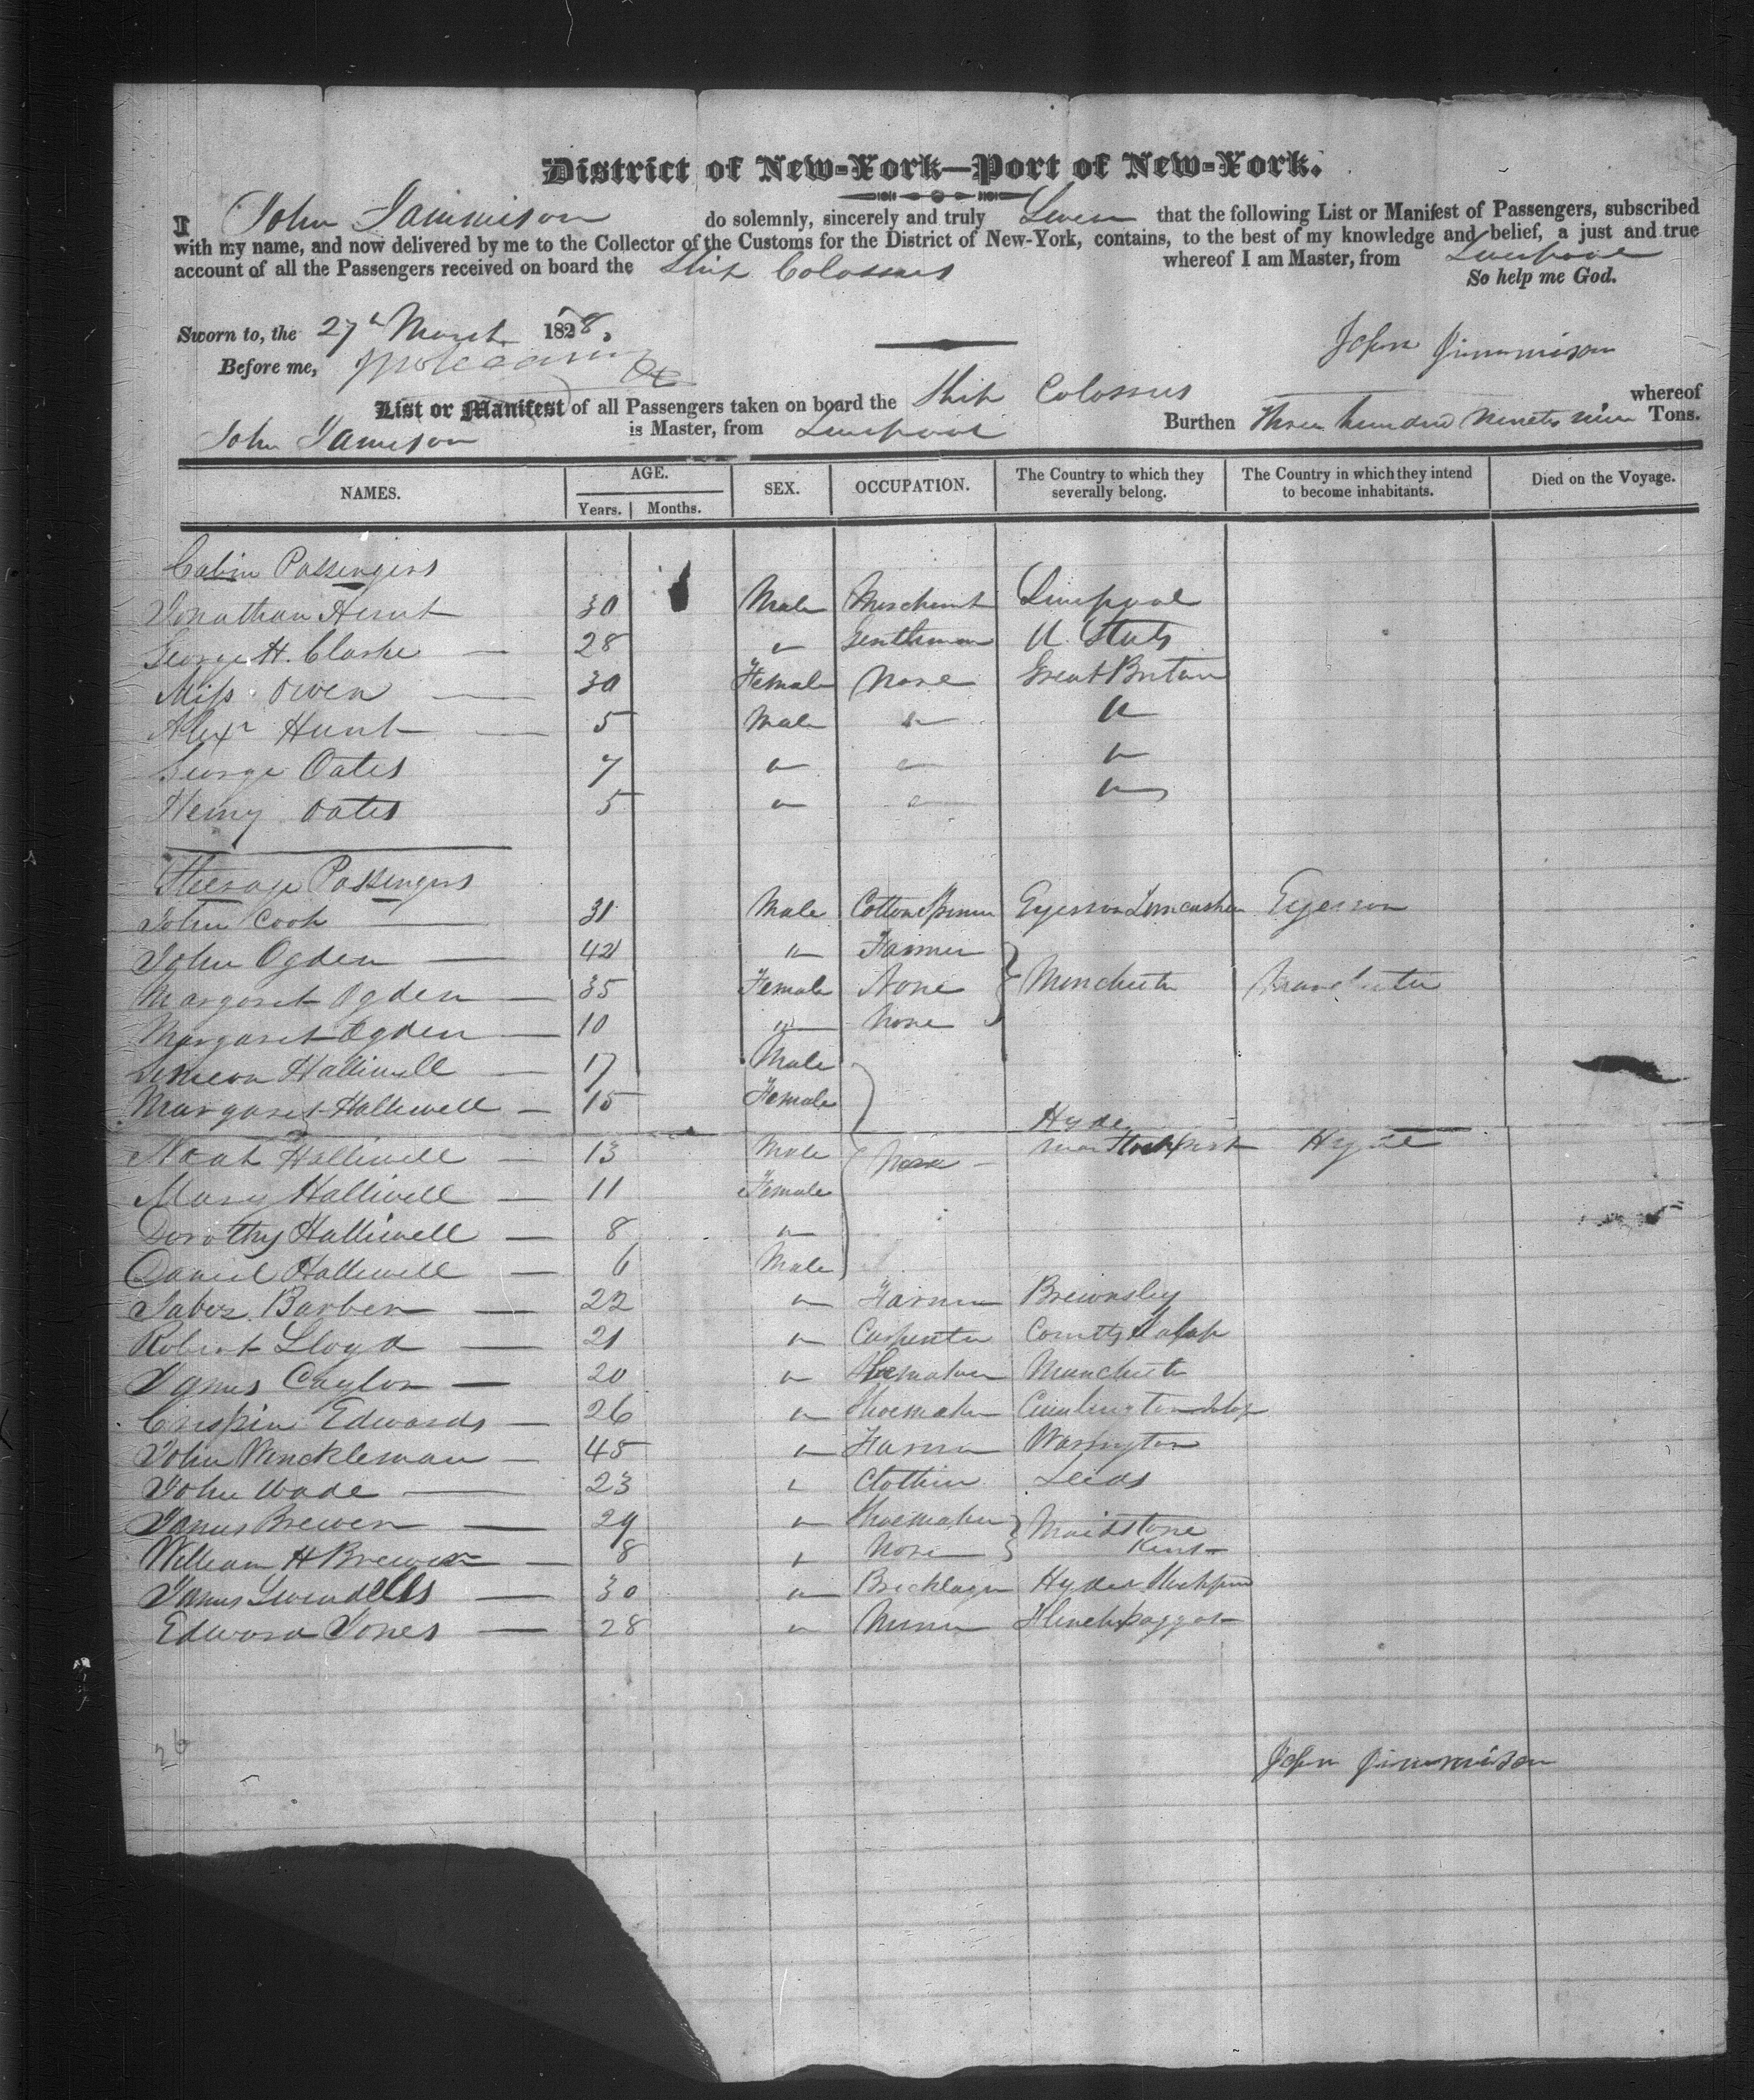 District of New-York—Port of New-York.
I John Jammison do solemnly, sincerely and truly Swear that the following List or Manifest of Passengers, subscribed
with my name, and now delivered by me to the Collector of the Customs for the District of New-York, contains, to the best of my knowledge and belief, a just and true
account of all the Passengers received on board the Ship Colossus whereof I am Master, from Liverpool
So help me God.
Sworn to, the 27th March 1828.
John Jimmison
Before me,
List or Manifest of all Passengers taken on board the Ship Colossus whereof
John Jameson is Master, from Liverpool Burthen Three hundred ninety nine Tons.
NAMES. AGE. Years. Months. SEX. OCCUPATION. The Country to which they severally belong. The Country in which they intend to become inhabitants. Died on the Voyage.
Cabin Passengers
Jonathan Hunt 30 Male Merchant Liverpool
George H. Clarke — 28 " Gentleman U. States
Miss Owen — 30 Female None Great Britain
Alexr Hunt — 5 Male " "
George Oates 7 " " "
Henry Oates 5 " " "
Steerage Passengers
John Cook — 31 Male Cotton Spinner Lancashire
John Ogden — 42 " Farmer
Margaret Ogden — 35 Female None Manchester Manchester
Margaret Ogden — 10 " None
Simeon Halliwell — 17 Male
Margaret Halliwell — 15 Female
Noah Halliwell — 13 Male None Hyde near Stockport Hyde
Mary Halliwell — 11 Female
Dorothy Halliwell — 8 "
Daniel Halliwell — 6 Male
Jabez Barber — 22 " Farmer
Robert Lloyd — 21 " Carpenter County Salop
James Caylor — 20 " Manchester
Crispin Edwards — 26 " Shoemaker
John Winckleman — 45 " Farmer Warrington
John Wade — 23 " Clothier Leeds
James Brewer — 29 " Shoemaker Maidstone
William H Brewer — 8 " None Kent
James — 30 " Bricklayer Hyde Stockport
Edward Jones — 28 " Miner
26
John Jimmison